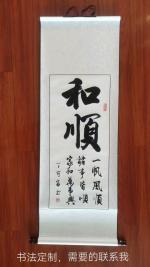 和順
一帆風順
諸事皆順
家和萬事興
书法定制，需要的联系我